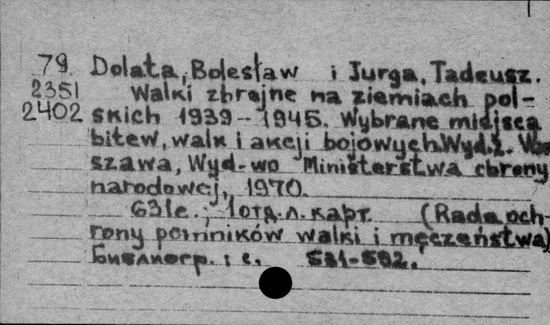 79 Dolata, Bolesław i Jurga, Tadeusz.
2351 Walki zbrojne na ziemiach pol-
2402 skich 1939-1945. Wybrane miejsca
bitew, walk i akcji bojowych. Wyd. 2. War-
szawa, Wyd-wo Ministerstwa obrony
narodowej, 1970.
631 с.; 1 отд. л. карт. (Rada och-
rony pomników walki i męczeństwa)
Библиогр.: с. 581-582.